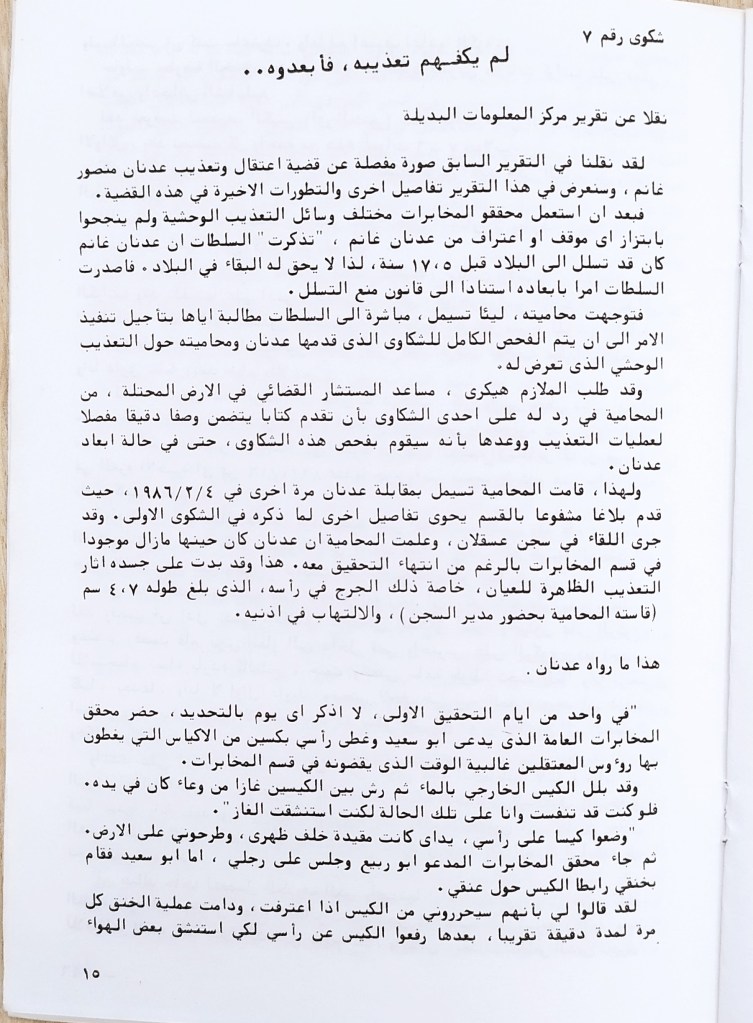 شكوى رقم ٧
لم يكفهم تعذيبه، فأبعدوه..
نقلا عن تقرير مركز المعلومات البديلة
لقد نقلنا في التقرير السابق صورة مفصلة عن قضية اعتقال وتعذيب عدنان منصور
غانم ، وسنعرض في هذا التقرير تفاصيل اخرى والتطورات الاخيرة في هذه القضية.
فبعد ان استعمل محققو المخابرات مختلف وسائل التعذيب الوحشية ولم ينجحوا
بابتزاز اى موقف او اعتراف من عدنان غانم ، "تذكرت" السلطات ان عدنان غانم
كان قد تسلل الى البلاد قبل ١٧،٥ سنة، لذا لا يحق له البقاء في البلاد. فاصدرت
السلطات امرا بابعاده استنادا الى قانون منع التسلل.
فتوجهت محاميته ، ليئا تسيمل ، مباشرة الى السلطات مطالبة اياها بتأجيل تنفيذ
الامر الى ان يتم الفحص الكامل للشكاوى الذى قدمها عدنان ومحاميته حول التعذيب
الوحشي الذى تعرض له.
وقد طلب الملازم هيكرى ، مساعد المستشار القضائي في الارض المحتلة ، من
المحامية في رد له على احدى الشكاوى بأن تقدم كتابا يتضمن وصفا دقيقا مفصلا
لعمليات التعذيب ووعدها بأنه سيقوم بفحص هذه الشكاوى ، حتى في حالة ابعاد
عدنان.
ولهذا ، قامت المحامية تسيمل بمقابلة عدنان مرة اخرى في ١٩٨٦/٢/٤، حيث
قدم بلاغا مشفوعا بالقسم يحوى تفاصيل اخرى لما ذكره في الشكوى الاولى. وقد
جرى اللقاء في سجن عسقلان ، وعلمت المحامية ان عدنان كان حينها مازال موجودا
في قسم المخابرات بالرغم من انتهاء التحقيق معه. هذا وقد بدت على جسده اثار
التعذيب الظاهرة للعيان ، خاصة ذلك الجرح في رأسه، الذى بلغ طوله ٤،٧ سم
(قاسته المحامية بحضور مدير السجن) ، والالتهاب في اذنيه.
هذا ما رواه عدنان .
"في واحد من ايام التحقيق الاولى، لا اذكر اى يوم بالتحديد ، حضر محقق
المخابرات العامة الذى يدعى ابو سعيد وغطى رأسي بكسين من الاكياس التي يغطون
بها رءوس المعتقلين غالبية الوقت الذى يقضونه في قسم المخابرات.
وقد بلل الكيس الخارجي بالماء ثم رش بين الكيسين غازا من وعاء كان في يده.
فلو كنت قد تنفست وانا على تلك الحالة لكنت استنشقت الغاز".
"وضعوا كيسا على رأسي ، يداى كانت مقيدة خلف ظهرى ، وطرحوني على الارض.
ثم جاء محقق المخابرات المدعو ابو ربيع وجلس على رجلي ، اما ابو سعيد فقام
بخنقي رابطا الكيس حول عنقي.
لقد قالوا لي بأنهم سيحرروني من الكيس اذا اعترفت ، ودامت عملية الخنق كل
مرة لمدة دقيقة تقريبا ، بعدها رفعوا الكيس عن رأسي لكي استنشق بعض الهواء
١٥